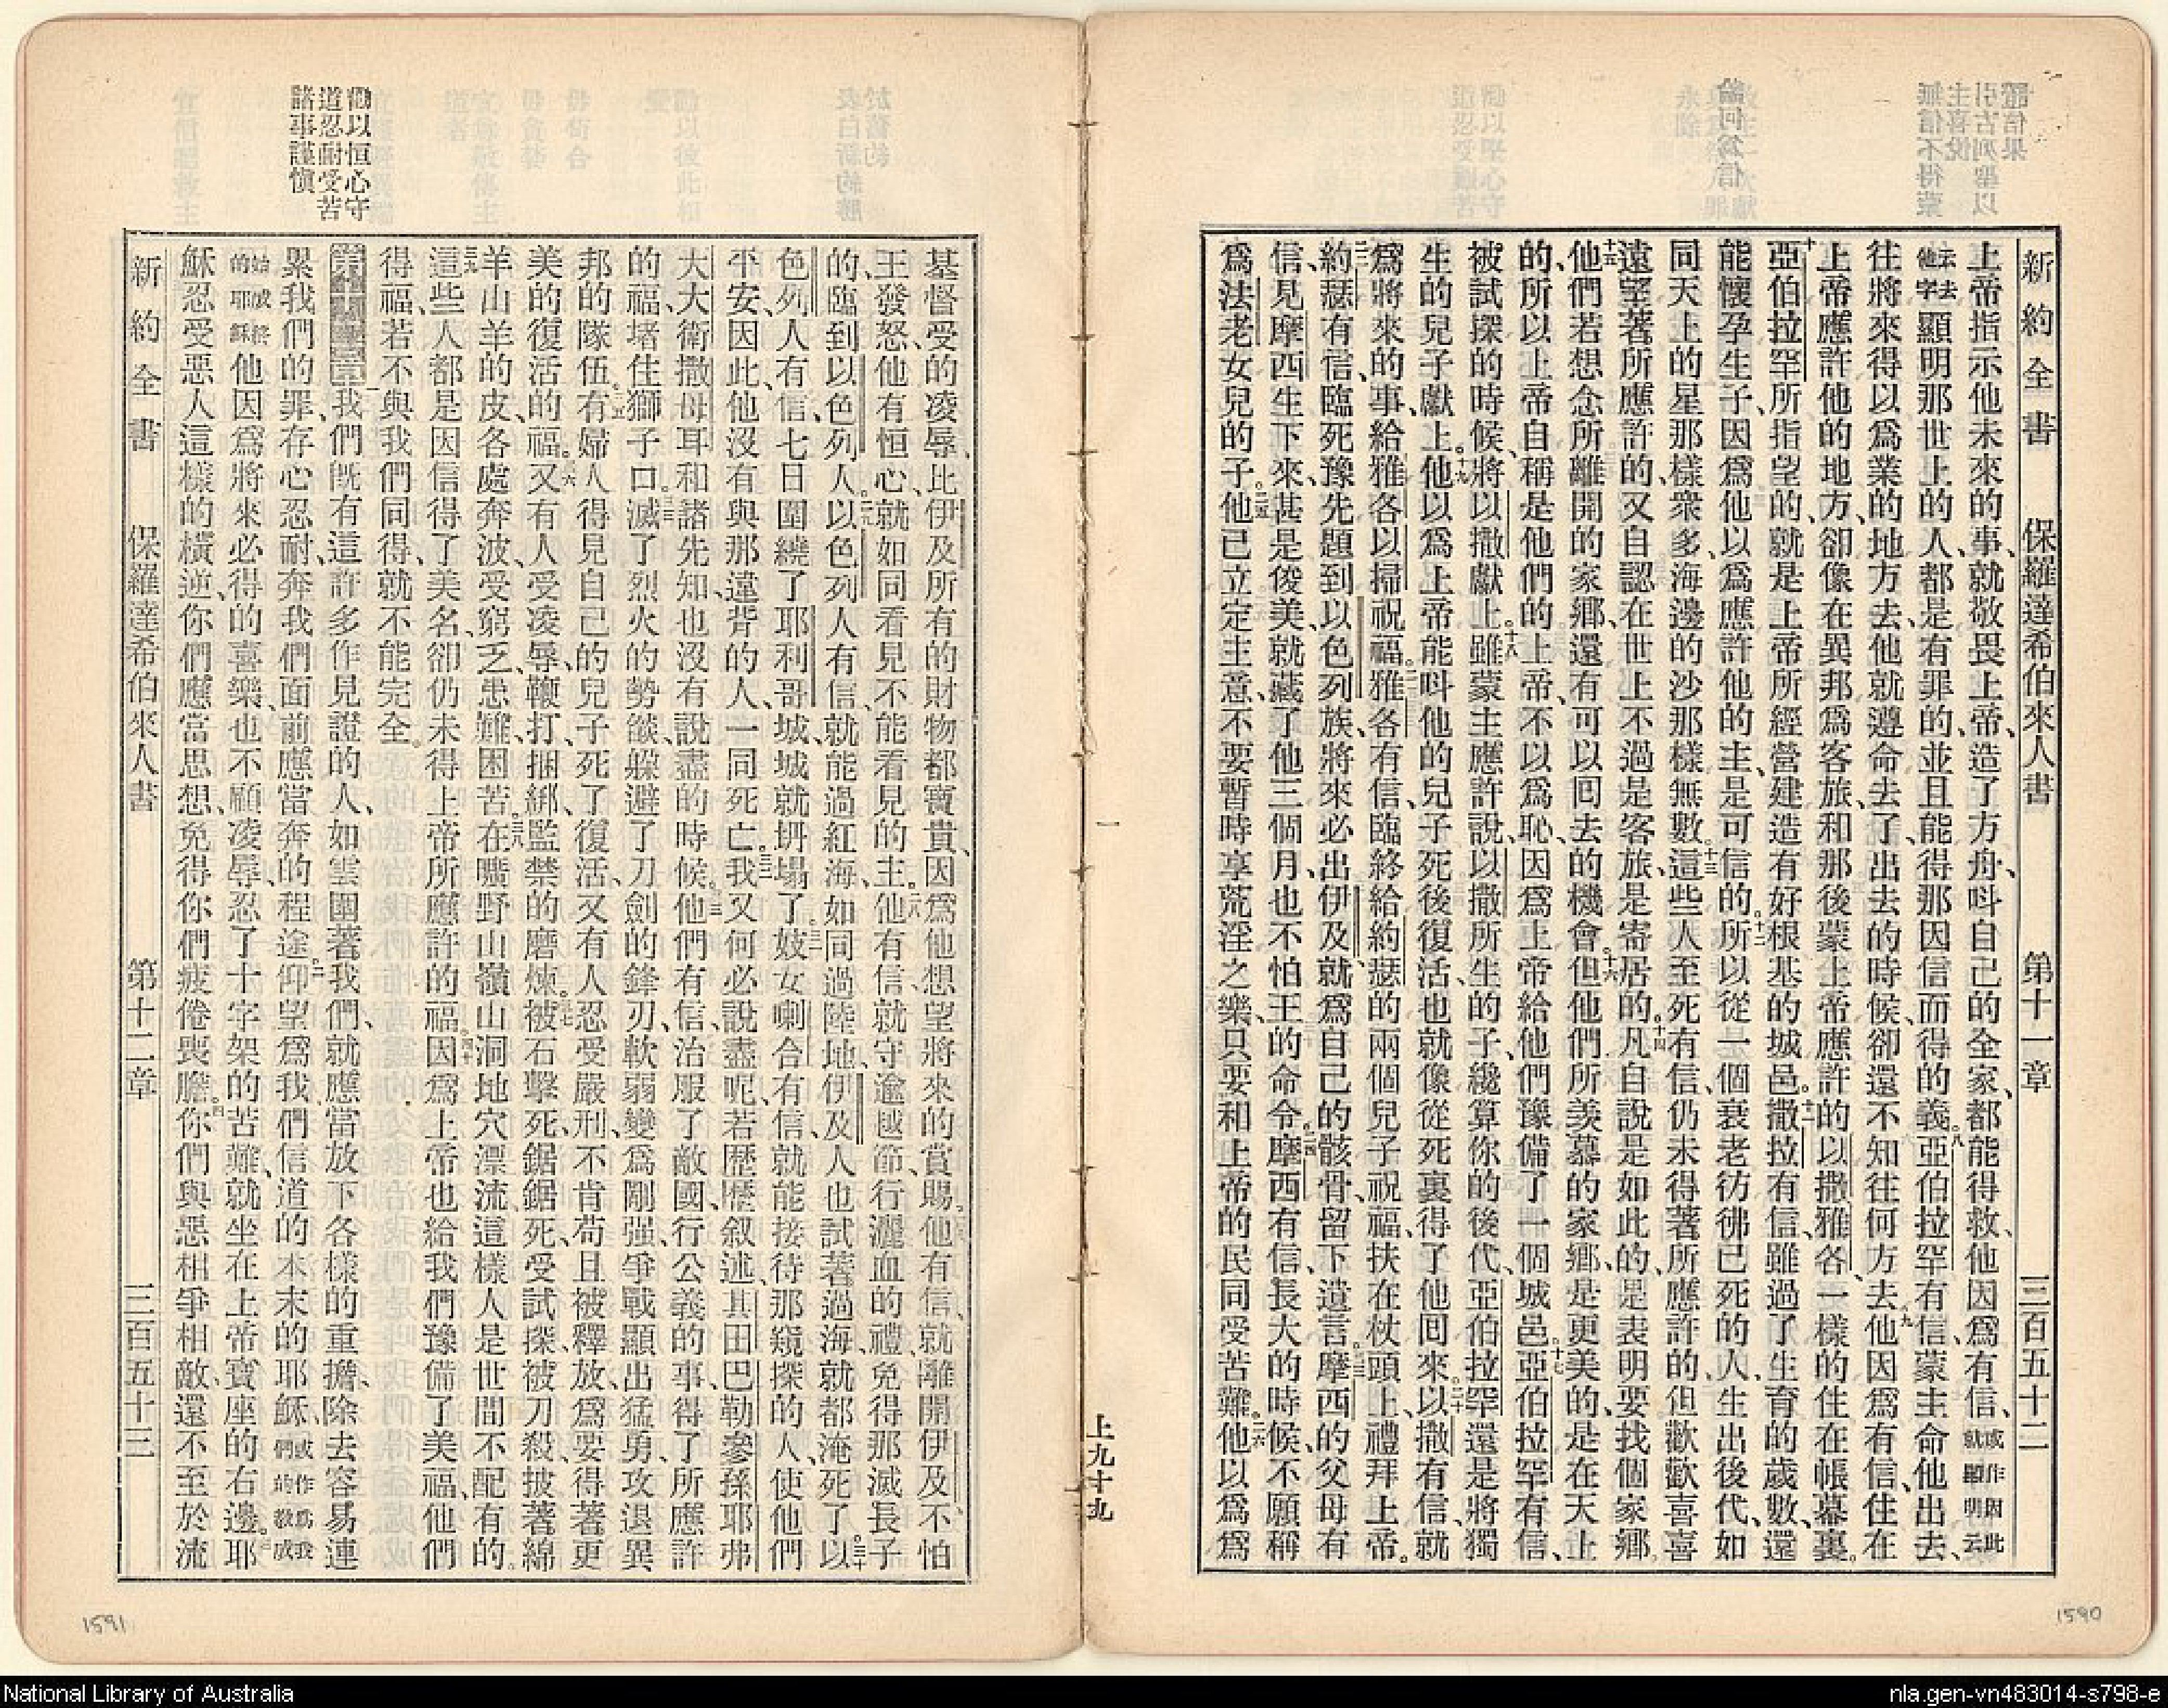 新約全書 保羅達希伯來人書 第十一章 三百五十二
上帝指示他未來的事、就敬畏上帝、造了方舟、呌自己的全家、都能得救、他因爲有信、或作因此就顯明云
云去他字顯明那世上的人、都是有罪的、並且能得那因信而得的義。八亞伯拉罕有信、蒙主命他出去、
往將來得以爲業的地方去、他就遵命去了、出去的時候、卻還不知往何方去。九他因爲有信、住在
上帝應許他的地方、卻像在異邦爲客旅、和那後蒙上帝應許的以撒雅各、一樣的住在帳幕裏。
十亞伯拉罕所指望的、就是上帝所經營建造有好根基的城邑。十一撒拉有信、雖過了生育的歲數、還
能懷孕生子、因爲他以爲應許他的主、是可信的。十二所以從一個衰老彷彿已死的人、生出後代、如
同天上的星那樣衆多、海邊的沙那樣無數。十三這些人至死有信、仍未得著所應許的、但歡歡喜喜
遠望著所應許的、又自認在世上不過是客旅、是寄居的。十四凡自說是如此的、是表明要找個家鄉。
十五他們若想念所離開的家鄉、還有可以囘去的機會。十六但他們所羡慕的家鄉、是更美的、是在天上
的、所以上帝自稱是他們的上帝、不以爲恥、因爲上帝給他們豫備了一個城邑。十七亞伯拉罕有信、
被試探的時候、將以撒獻上。十八雖蒙主應許說、以撒所生的子、纔算你的後代、亞伯拉罕還是將獨
生的兒子獻上。十九他以爲上帝能呌他的兒子死後復活、也就像從死裏得了他囘來。二十以撒有信、就
爲將來的事、給雅各以掃祝福。二一雅各有信、臨終給約瑟的兩個兒子祝福、扶在杖頭上、禮拜上帝。
二二約瑟有信、臨死豫先題到以色列族、將來必出伊及、就爲自己的骸骨、留下遺言。二三摩西的父母有
信、見摩西生下來、甚是俊美、就藏了他三個月、也不怕王的命令。二四摩西有信、長大的時候、不願稱
爲法老女兒的子。二五他已立定主意、不要暫時享荒淫之樂、只要和上帝的民同受苦難。二六他以爲爲
上九十九
勸以恒心守
道忍耐受苦
諸事謹愼
基督受的凌辱、比伊及所有的財物都寶貴、因爲他想望將來的賞賜。他有信、就離開伊及、不怕
王發怒、他有恒心、就如同看見不能看見的主。二八他有信、就守逾越節、行灑血的禮、免得那滅長子
的、臨到以色列人。二九以色列人有信、就能過紅海、如同過陸地、伊及人也試著過海、就都淹死了。三十以
色列人有信、七日圍繞了耶利哥城、城就坍塌了。三一妓女喇合有信、就能接待那窺探的人、使他們
平安、因此、他沒有與那違背的人、一同死亡。三二我又何必說盡呢、若歷歷叙述其田巴勒參孫耶弗
大大衛撒母耳和諸先知、也沒有說盡的時候。三三他們有信、治服了敵國、行公義的事、得了所應許
的福、堵住獅子口。三四滅了烈火的勢燄、躱避了刀劍的鋒刃、軟弱變爲剛强、爭戰顯出猛勇、攻退異
邦的隊伍。三五有婦人得見自己的兒子死了復活、又有人忍受嚴刑、不肯苟且被釋放、爲要得著更
美的復活的福。三六又有人受凌辱、鞭打、捆綁、監禁的磨煉。三七被石擊死、鋸鋸死、受試探、被刀殺、披著綿
羊山羊的皮、各處奔波、受窮乏、患難、困苦。三八在曠野山嶺山洞地穴漂流、這樣人是世間不配有的。
三九這些人都是因信得了美名、卻仍未得上帝所應許的福。四十因爲上帝也給我們豫備了美福、他們
得福、若不與我們同得、就不能完全。
第十二章一我們旣有這許多作見證的人、如雲圍著我們、就應當放下各樣的重擔、除去容易連
累我們的罪、存心忍耐、奔我們面前應當奔的程途。二仰望爲我們信道的本末的耶穌、或作爲我們的敎成
始成終的耶穌他因爲將來必得的喜樂、也不顧凌辱、忍了十字架的苦難、就坐在上帝寶座的右邊。三耶
穌忍受惡人這樣的橫逆、你們應當思想、免得你們疲倦喪膽。四你們與惡相爭相敵、還不至於流
新約全書 保羅達希伯來人書 第十二章 三百五十三
1591
1590
National Library of Australia
nla.gen-vn483014-s798-e